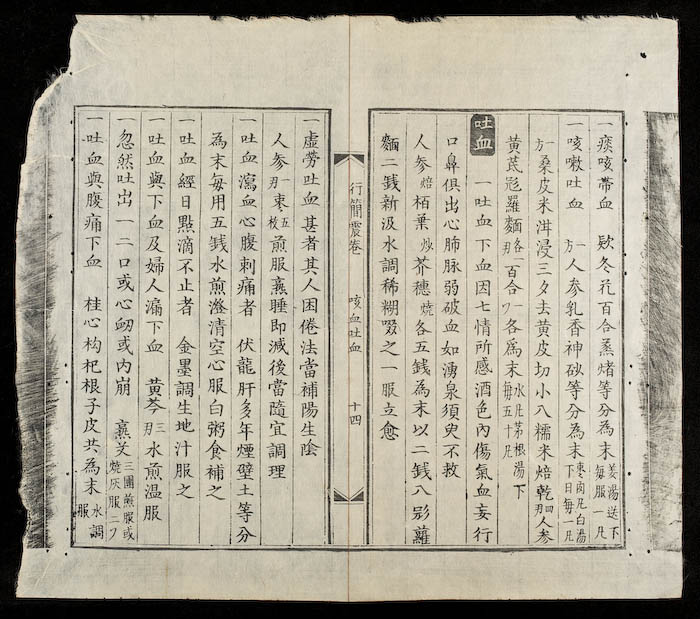 一痰咳帶血 欵冬花百合蒸焙等分為末 姜湯送下每服一凡
一咳嗽吐血 一方人参乳香神砂等分為末 枣肉凡白湯下日每一凡
一方桑皮米泔浸三夕去黄皮切小八糯米焙乾四刃人参
黄茋羅麵各一刃百合一𠃌各爲末 水凡茅根湯下每五十凡
吐血 一吐血下血因七情所感酒色內傷氣血妄行
口鼻俱出心肺脉弱破血如湧泉須臾不救
人参焙栢葉炒芥穗燒各五錢為末以二錢八蘿
麵二錢新汲水調稀糊啜之一服立愈
行簡震卷 咳血吐血 十四
一虚勞吐血甚者其人困倦法當補陽生陰
人参一刃枣五枚煎服熏睡即減後當隨宜調理
一吐血瀉血心腹刺痛者 伏龍肝多年煙壁土等分
為末每用五錢水煎澄清空心服白粥食補之
一吐血經日點滴不止者 金墨調生地汁服之
一吐血與下血及婦人漏下血 黄芩三刃水煎温服
一忽然吐出一二口或心衂或内崩 熏艾三團煎服或燒灰服二𠃌
一吐血與腹痛下血 桂心枸杞根子皮共為末 水調服